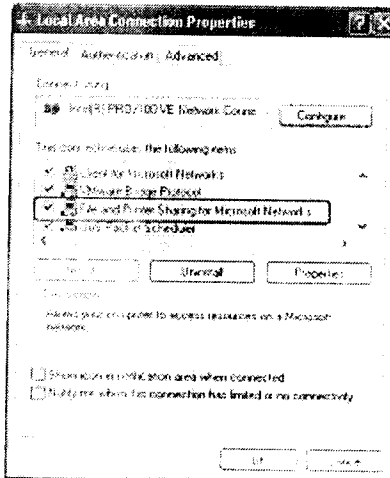 Local Area Connection Properties
General Authentication Advanced
Connect using
Intel(R) PRO/100 VE Network Conne
Configure
This connection uses the following items
Client for Microsoft Networks
VMware Bridge Protocol
File and Printer Sharing for Microsoft Networks
QoS Packet Scheduler
Uninstall
Properties
Allows your computer to access resources on a Microsoft
network.
Show icon in notification area when connected
Notify me when this connection has limited or no connectivity